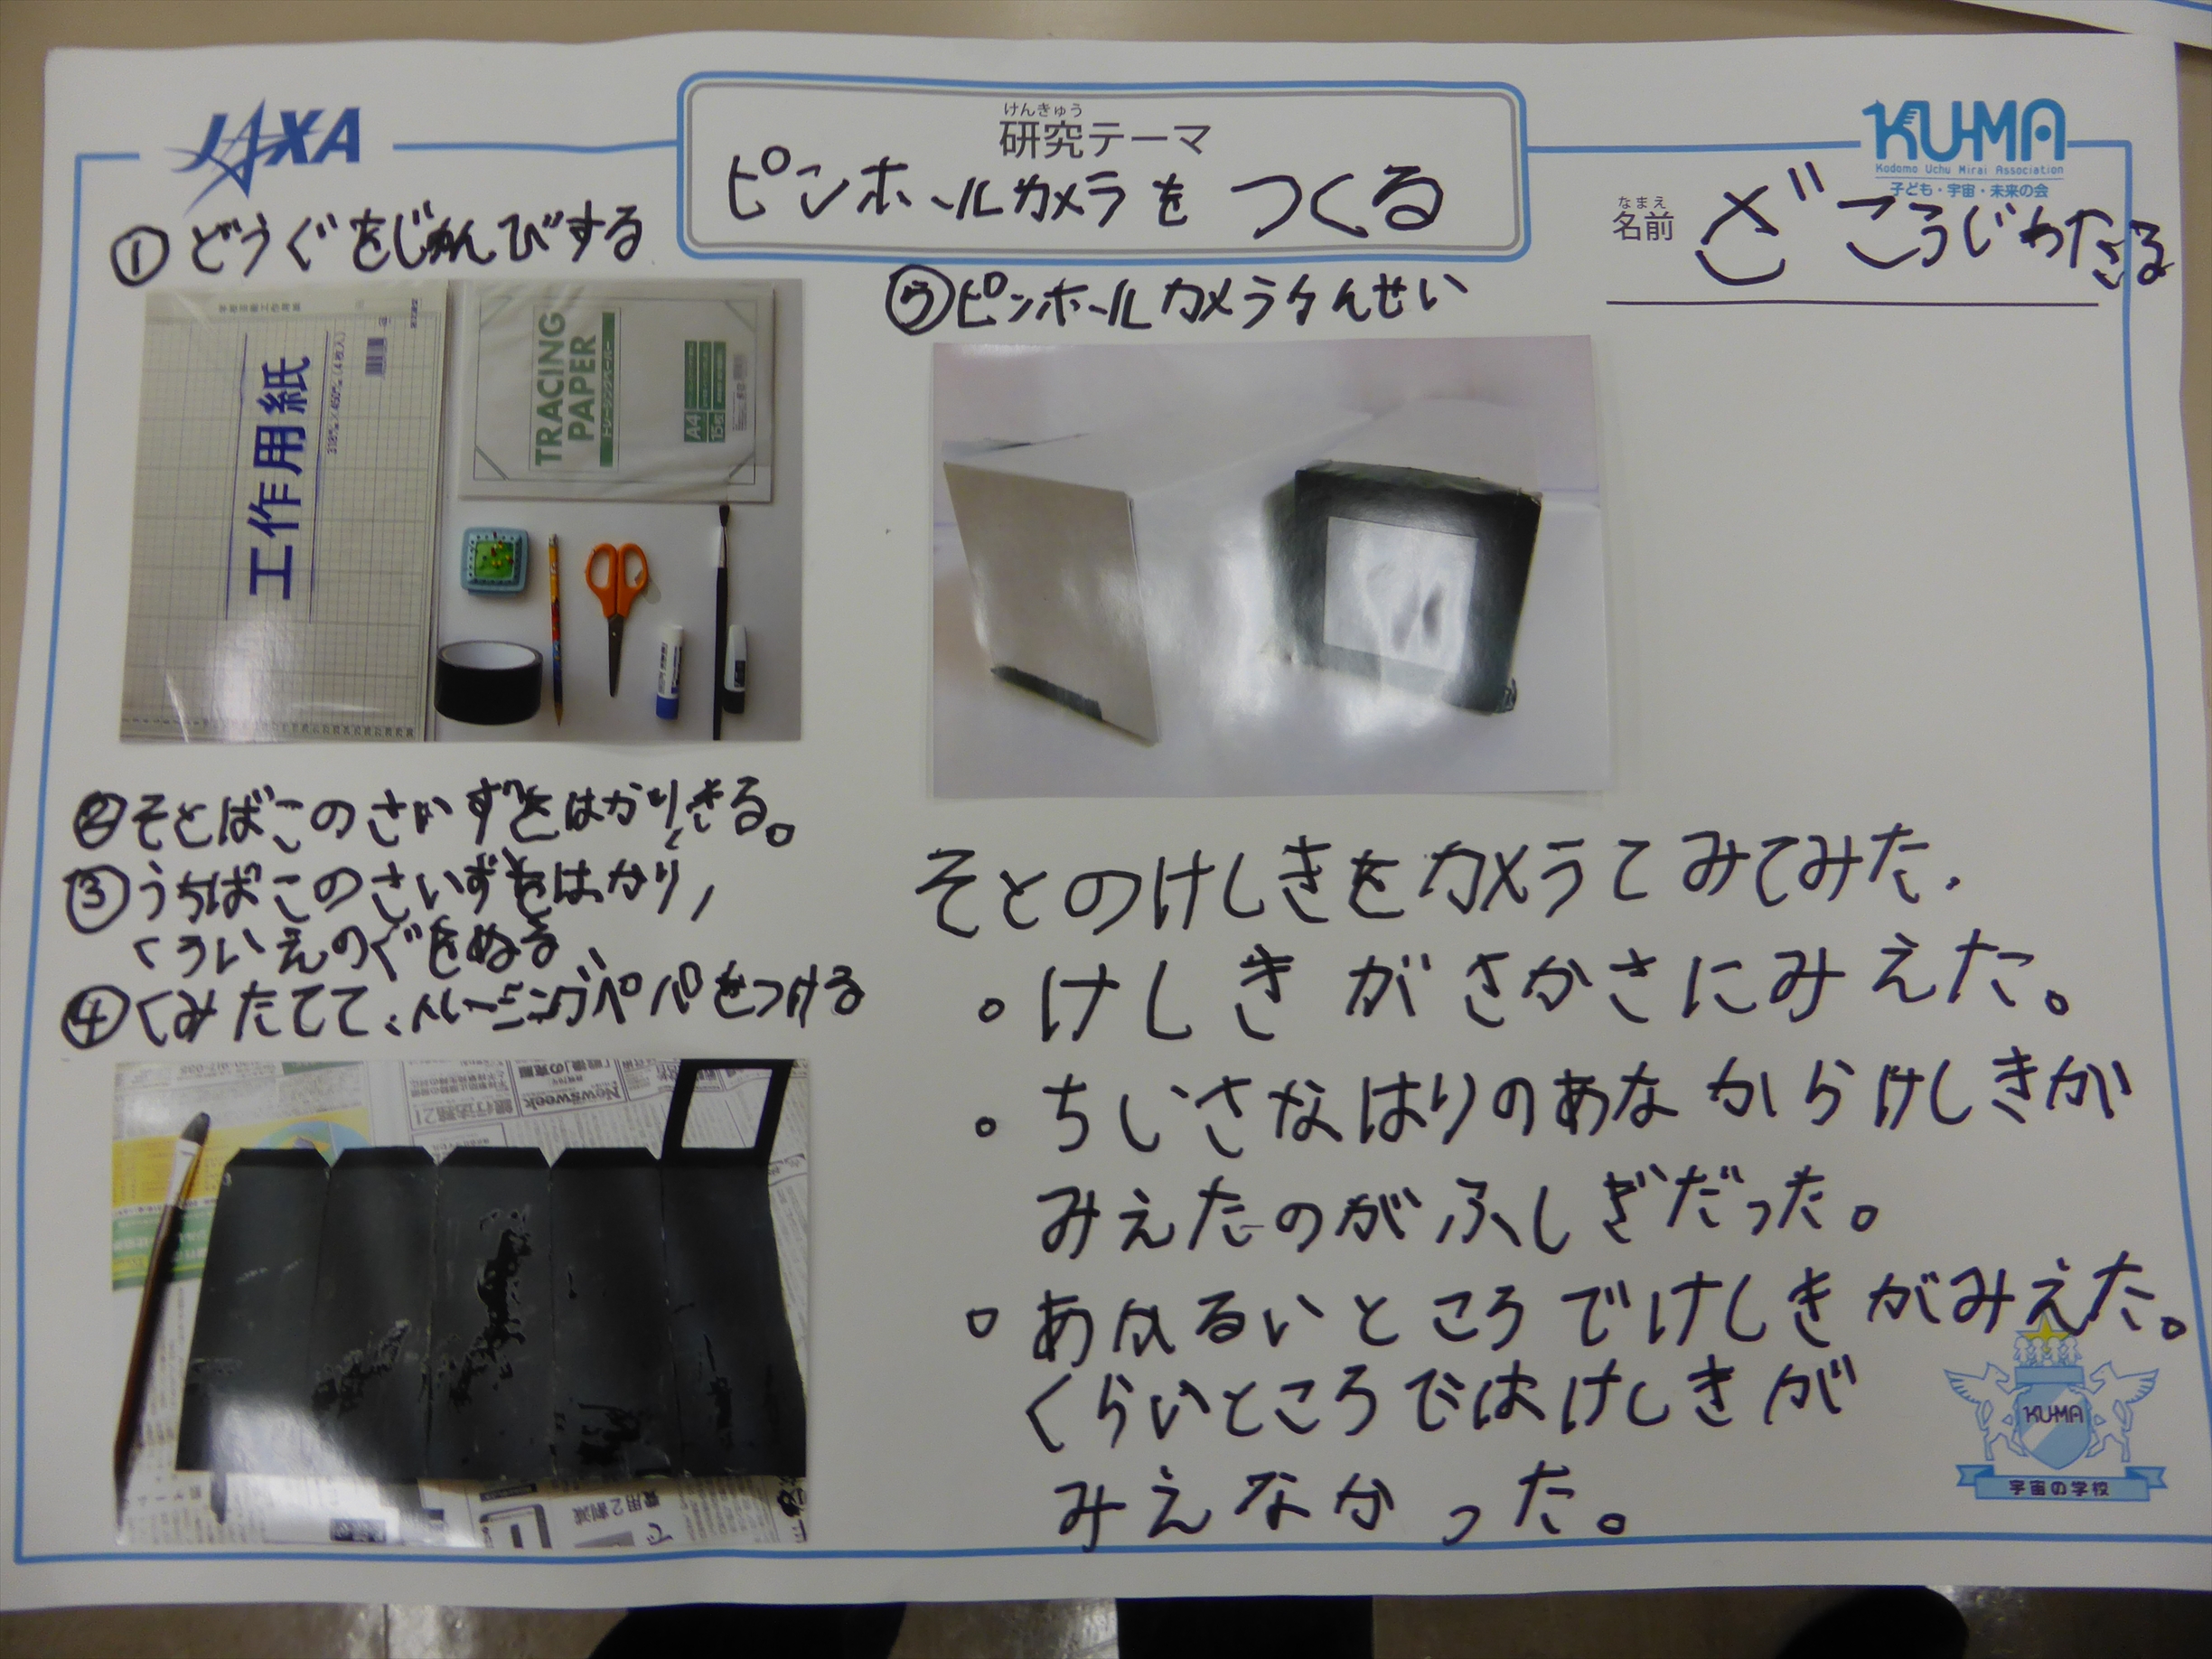 JAXA
けんきゅう
研究テーマ
ピンホールカメラを つくる
KU-MA
Kodomo Uchu Mirai Association
子ども・宇宙・未来の会
なまえ
名前
こうじわたる
① どうぐをじゅんびする
工作用紙
TRACING
PAPER
トレーシングペーパー
A4
15枚
②そとばこのさいずをはかり、きる。
③うちばこのさいずをはかり、
くろいえのぐをぬる、
④くみたてて、トレーシングペパをつける
Newsweek
費用2割減
⑤ピンホールカメラかんせい
そとのけしきをカメラてみてみた.
。けしきがさかさにみえた。
。ちいさなはりのあなからけしきが
みえたのがふしぎだった。
。あかるいところでけしきがみえた。
くらいところではけしきが
みえなかった。
KU-MA
宇宙の学校